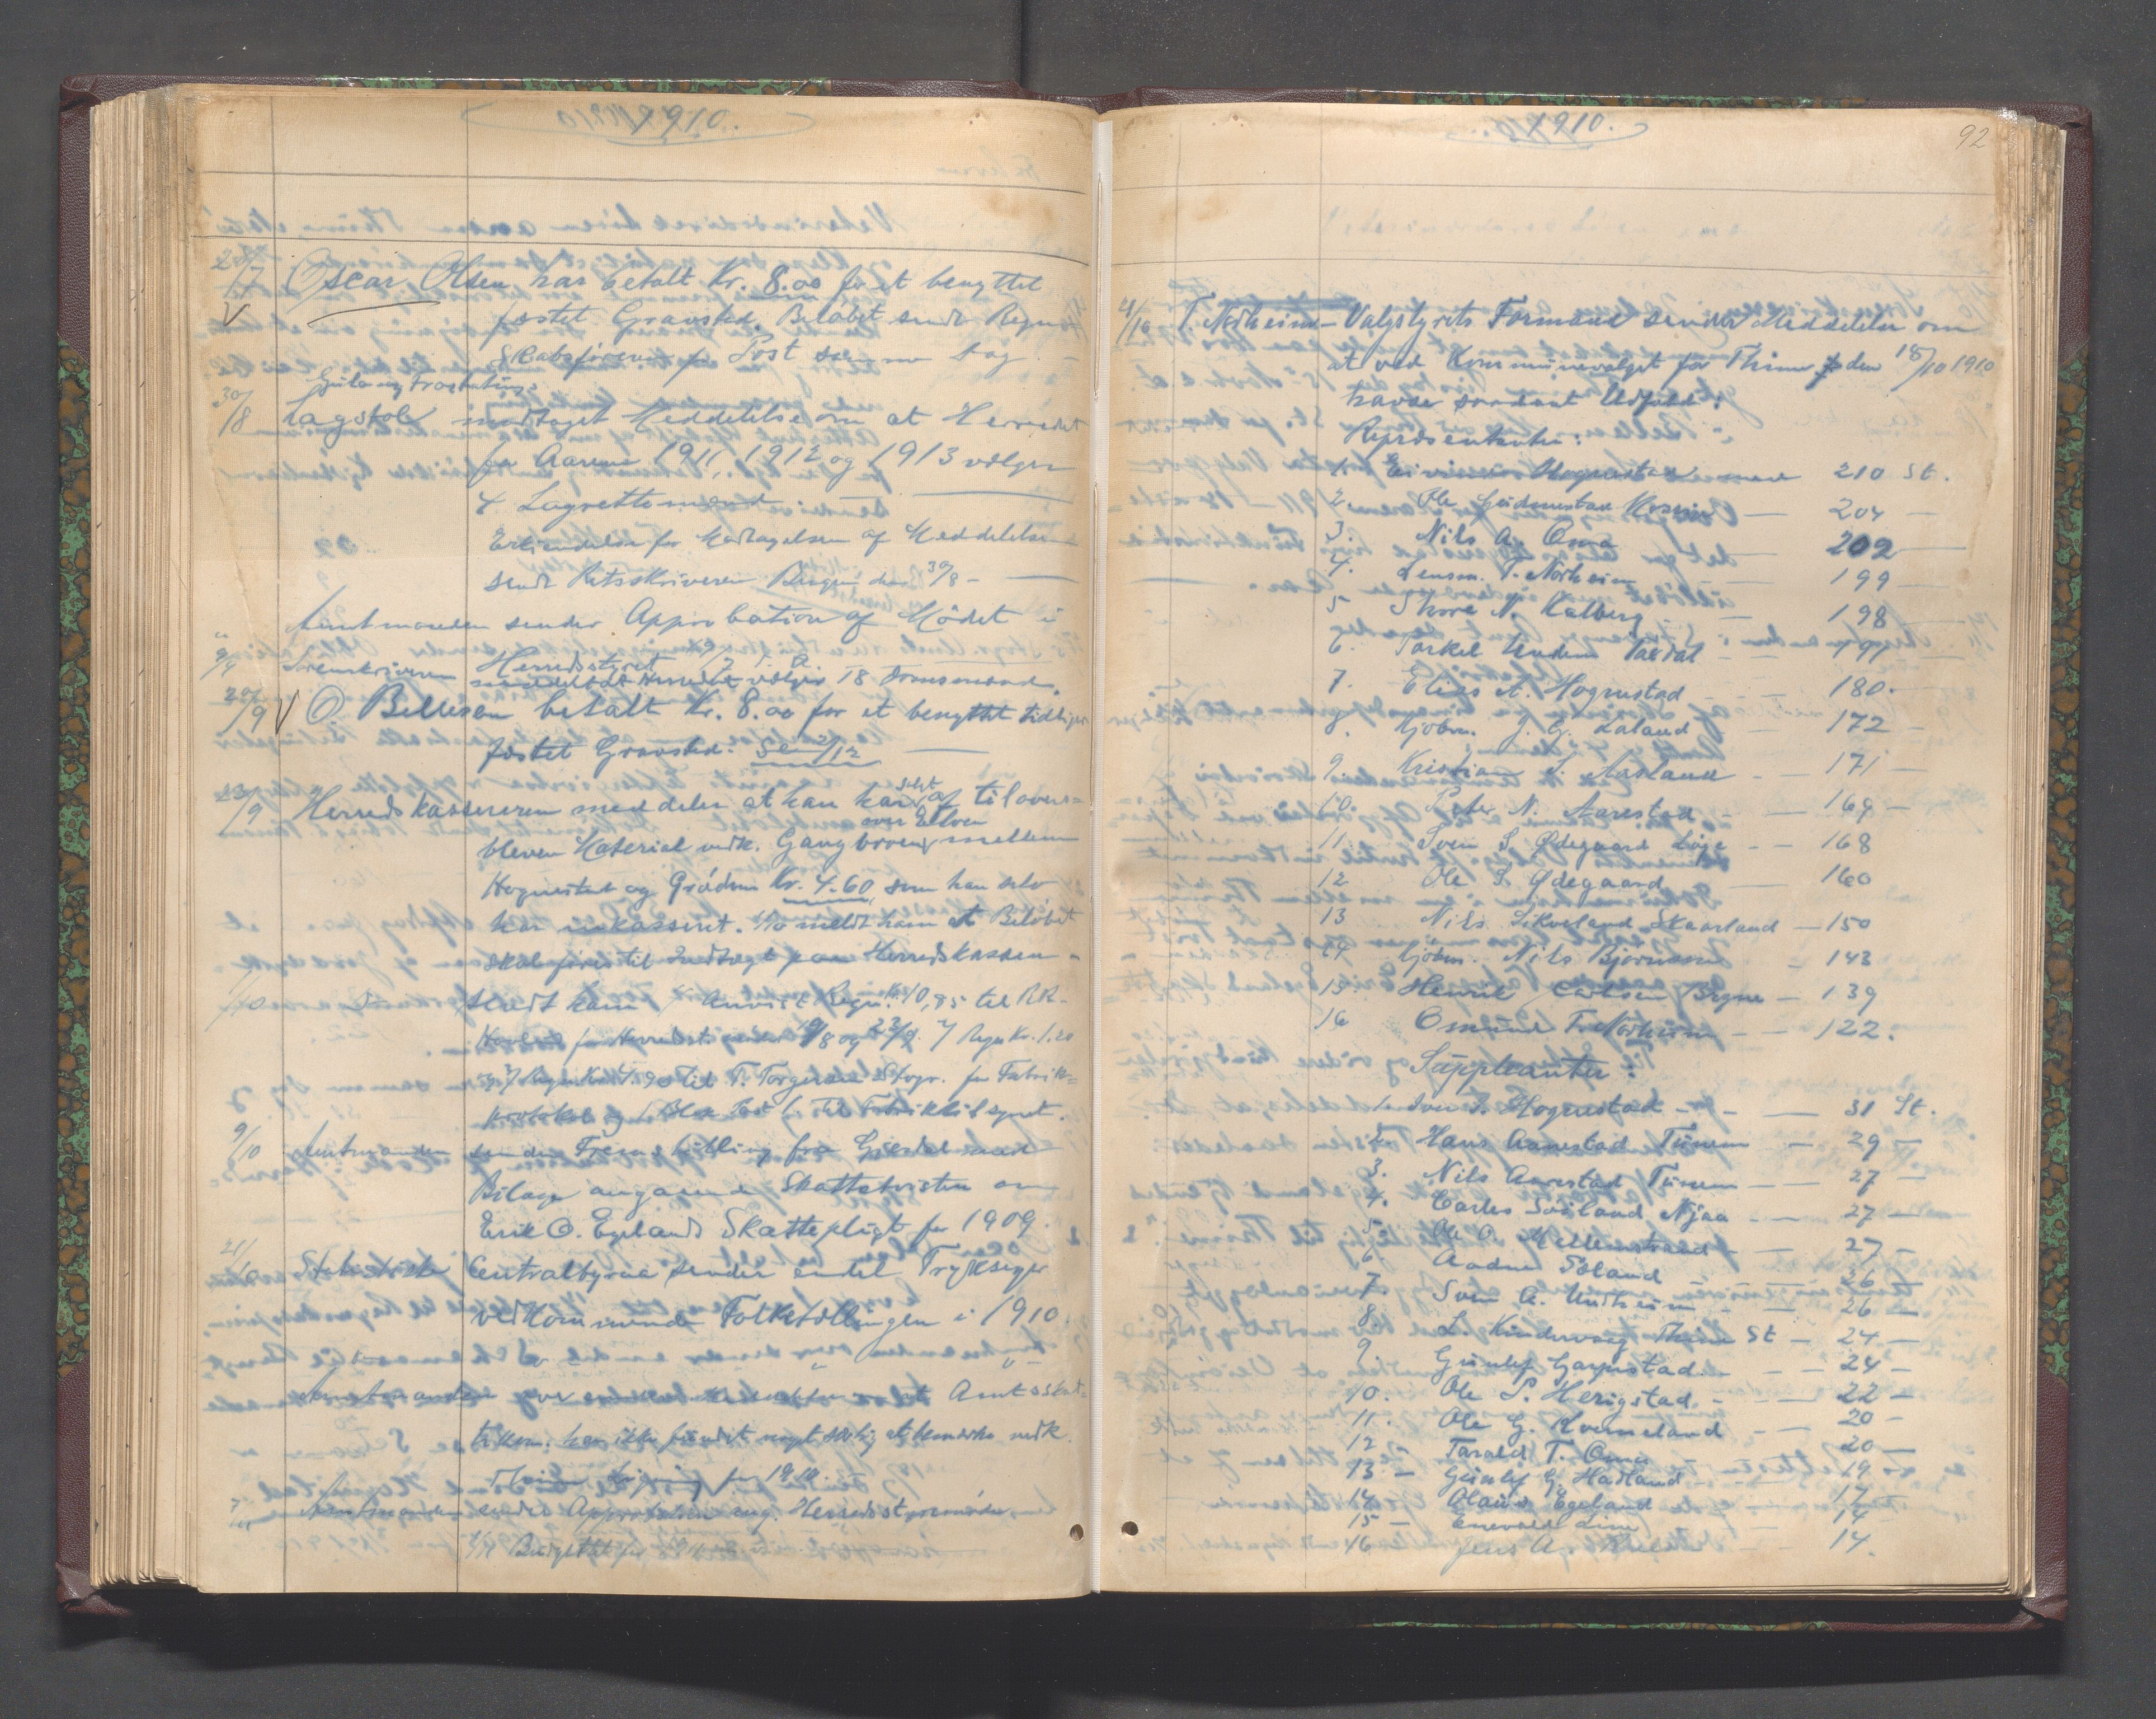 1910.
28/7 Oscar Olsen har betalt Kr. 8.00 for et benyttet
V fæstet Gravsted. Beløbet sendt Regn-
skabsføreren pr Post samme Dag.
Gula og Frostatings
30/8 Lagstol modtaget Meddelelse om at Herredet
for Aarene 1911, 1912 og 1913 vælger
4 Lagrettemænd.
Erkjendelse for Modtagelsen af Meddelelsen
sendt Retsskriveren Bergen den 30/8 -
Amtmanden sender Approbation af Mødet i
Herredsstyret 19/7 d. A.
9/9 Sorenskriveren meddeler at Herredet vælger 18 Domsmænd.
20/9 V O. Bellesen betalt Kr. 8.00 for et benyttet tidligere
fæstet Gravsted. Se 2/12
23/9 Herredskassereren meddeler at han har solgt af tilovers-
bleven Material vedk. Gangbroen over Elven mellem
Hognestad og Grødem Kr. 4.60, som han selv
har inkasseret. 1/10 meldt ham at Beløbet
skal føres til Indtægt paa Herredskassen.
1/10 - " - sendt ham 1 Anvist Regn. 10,85 til R.R.
Haaland for Herredsst. møder 19/8 og 23/9. 2/ Regn Kr. 1.20
3/ Regn Kr. 4.90 til T. Torgersen Stogr. for Fabrik-
protokol og 1 Blok Post til Fabriktilsynet.
9/10 Amtmanden sender Fremstilling fra Gjesdal med
Bilage angaaende Skattetvisten om
Erik O. Egelands Skattepligt for 1909.
21/10 Statistiske Centralbyraa sender endel Tryksager
vedkommende Folketællingen i 1910.
Amtmanden
Amtsskat-
tekom. har ikke fundet noget særlig at bemærke vedk.
Thime Ligning for 1910.
Amtmanden sender Approbation ang. Herredsstyremøder
Budgettet for
1910.
92
21/10 T. Nørheim - Valgstyrets Formand sender Meddelelse om
at ved Kommunevalget for Thime den 18/10 1910
havde saadant Udfald:
Repræsentanter:
1. Eivind Hognestad med 210 St.
2. Ole Gudmestad Kosein — 204 —
3. Nils A. Oma — 202 —
4. Lensm. T. Nørheim — 199 —
5 Thore N. Kalberg — 198 —
6. Torkel Undem Taxdal — 191 —
7. Elias A. Hognestad — 180.
8. Kjøbm. J. G. Laland — 172 —
9. Kristian S. Aasland — 171 —
10. Peder N. Aarestad — 169 —
11. Sven S. Ødegaard Loge — 168
12 Ole S. Ødegaard — 160
13 Nils Sikveland Skaarland — 150
14 Kjøbm. Nils Bjørnsen — 143
15. Henrik Carlsen Bryne — 139
16 Omund T. Nørheim — 122.
Suppleanter:
1. Iver S. Hognestad — 31 St.
2. Hans Aarestad Tunem — 29 —
3. Nils Aarestad Tunem — 27 —
4. Carlos Søiland Njaa — 27 —
5. Ole O. Mellemstrand — 27 —
6. Aadne Soland — 26 —
7. Sven A. Undheim — 26 —
8. L. Kindervaag Thime St — 24 —
9. Gunlef Garpestad — 24 —
10. Ole S. Herigstad — 22 —
11. Ole G. Kverneland — 20 —
12 — Tarald T. Oma — 20 —
13 — Gunlef G. Hadland — 19
14 — Olaus Egeland — 17
15 — Enevald Lima — 14 —
16 Jens A. — 14.